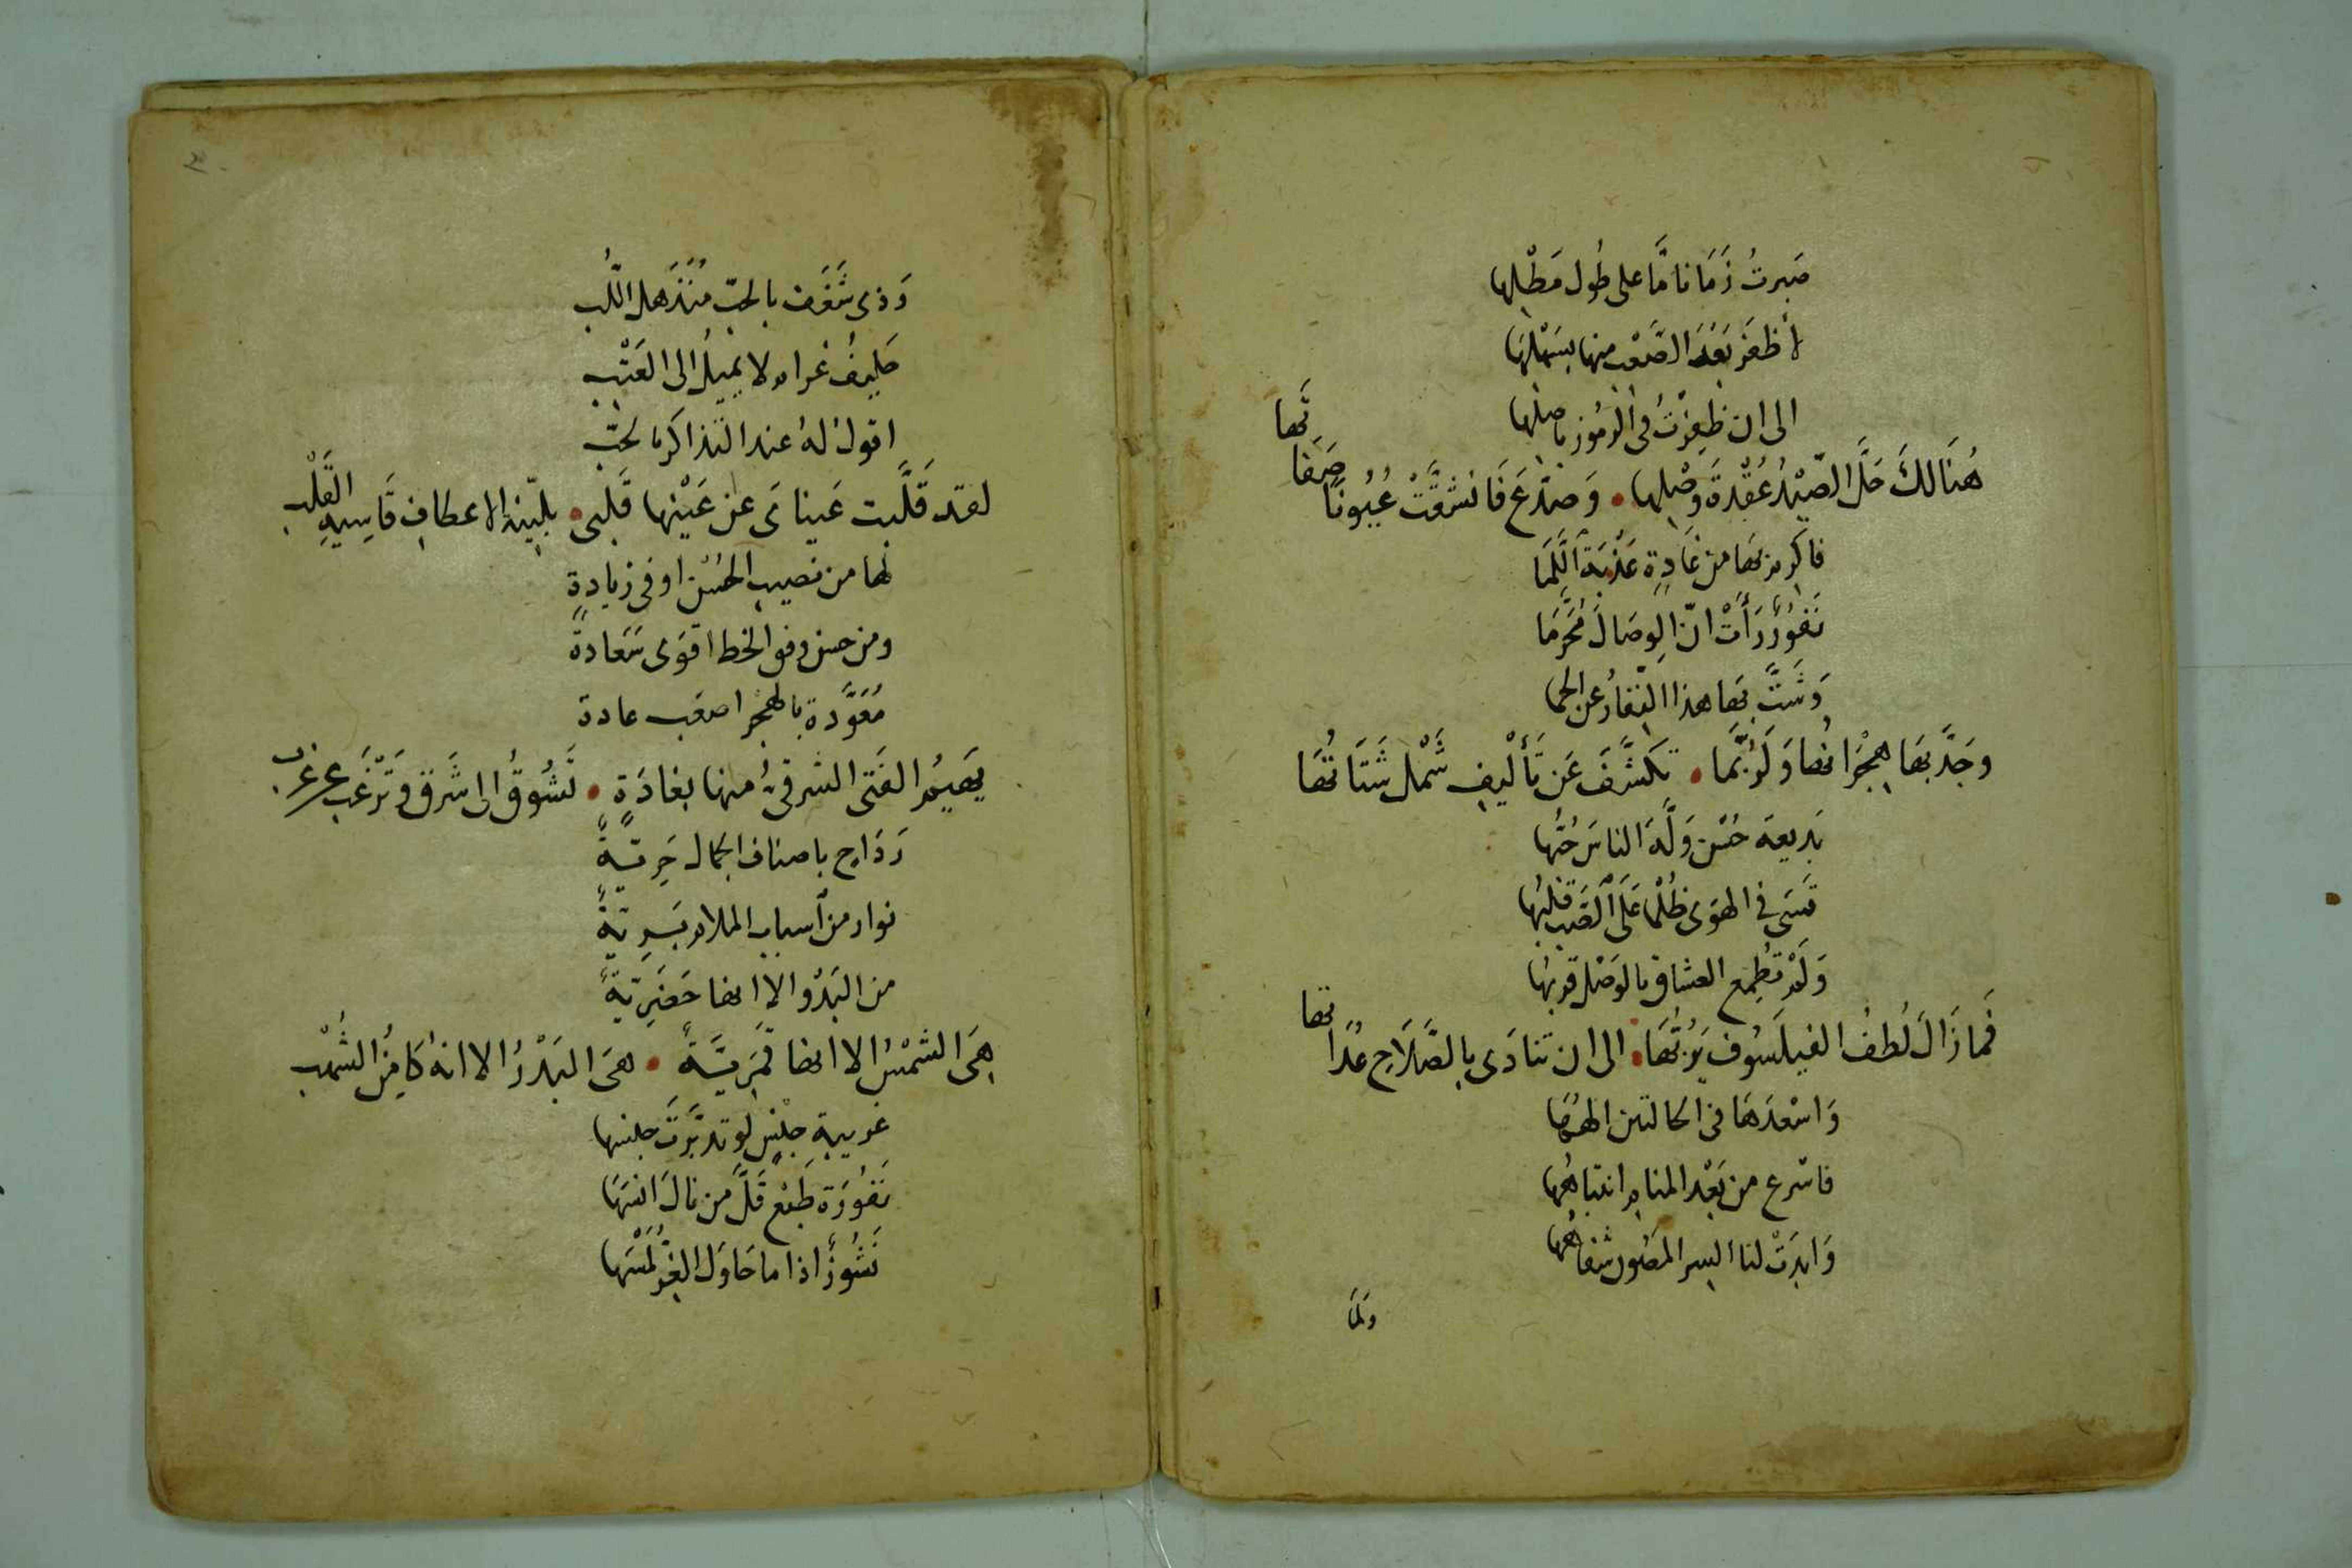 صَبرتُ زَمَانا مَّا على طُول مَطْلِها
لأظفَرَ بَعْدَ الصَّعْب منها بسَهْلِهَا
الى ان ظفِرْتُ فى الرمُوز باصلِها
هُنَالكَ حَلَّ الصَّيْدُ عُقْدَةَ وَصْلِها • وَصَدَّعَ فَانشقَّتْ عُيُونًا صَفَا تَها
فاكرِم بهَا من غَادةٍ عَذْبَةَ اللَّمَا
نَفُورٌ رَأَتْ انّ الوِصَالَ مُحَرّمَا
وَشَتَّ بهَا هذا النِّفَارُ عن الحما
وجَدَّ بهَا هِجْرَانُها وَلَرُبَّمَا • تكَشَّفَ عَن تَأْلِيفِ شَمْل شَتَاتُهَا
بَديعَة حُسْن وَلَّهَ الناسَ حُبُّها
قسَى فى الهوَى ظُلْمًا عَلَى الصَّب قلبُها
وَلَمْ تُطْمِع العشاق بالوَصْل قربُها
فَمازَالَ لُطفُ الفيلَسُوف يَرُبُّهَا • الى ان تنادَى بالصَّلَاحِ عُدَاتها
وَاسْعَدهَا فى الحالتين الهُهَا
فاسْرع من بَعْد المنام انتباهُها
وَابدَتْ لنا السر المصُون شفاهُها
وَلمّا
وَذى شَغَف بالحبّ مُنْذَهل اللُّبِ
حَليفُ غرام لا يَميلُ الى العَتْبِ
اقولُ لهُ عند التذاكر بالحبّ
لقد قَلَّبت عَينَاىَ عن عَيْنِها قَلبى • بليّنة الاعطافِ قَاسِيةِ القَلْبِ
لها من نصيبِ الحُسْن اوفى زيادةٍ
ومن حسن وفق الخط اقوَى سَعَادةً
مُعَوَّدة بالهجر اصعَب عادة
يَهيمُ الفَتى الشرقىُّ منها بغادَةٍ • تَشُوقُ الى شَرق وتَرْغَبُ عن غرب
رَدَاح باصناف الجمال حَرِيَّةٌ
نوار من أسباب الملام بَرِيَّةٌ
من البَدْو الا انها حَضَرِيَّةٌ
هِىَ الشمْسُ الا انها قَمَرِيَّةٌ • هىَ البَدْرُ الا انهُ كَامِنُ الشُهْبِ
غريبة جنْسٍ لو تدبَّرتَ جنسها
نَفُورَة طَبْع قَلَّ من نالَ انسَهَا
نَشُوزٌ اذا ما حَاوَل الغِرُّ لَمْسَهَا